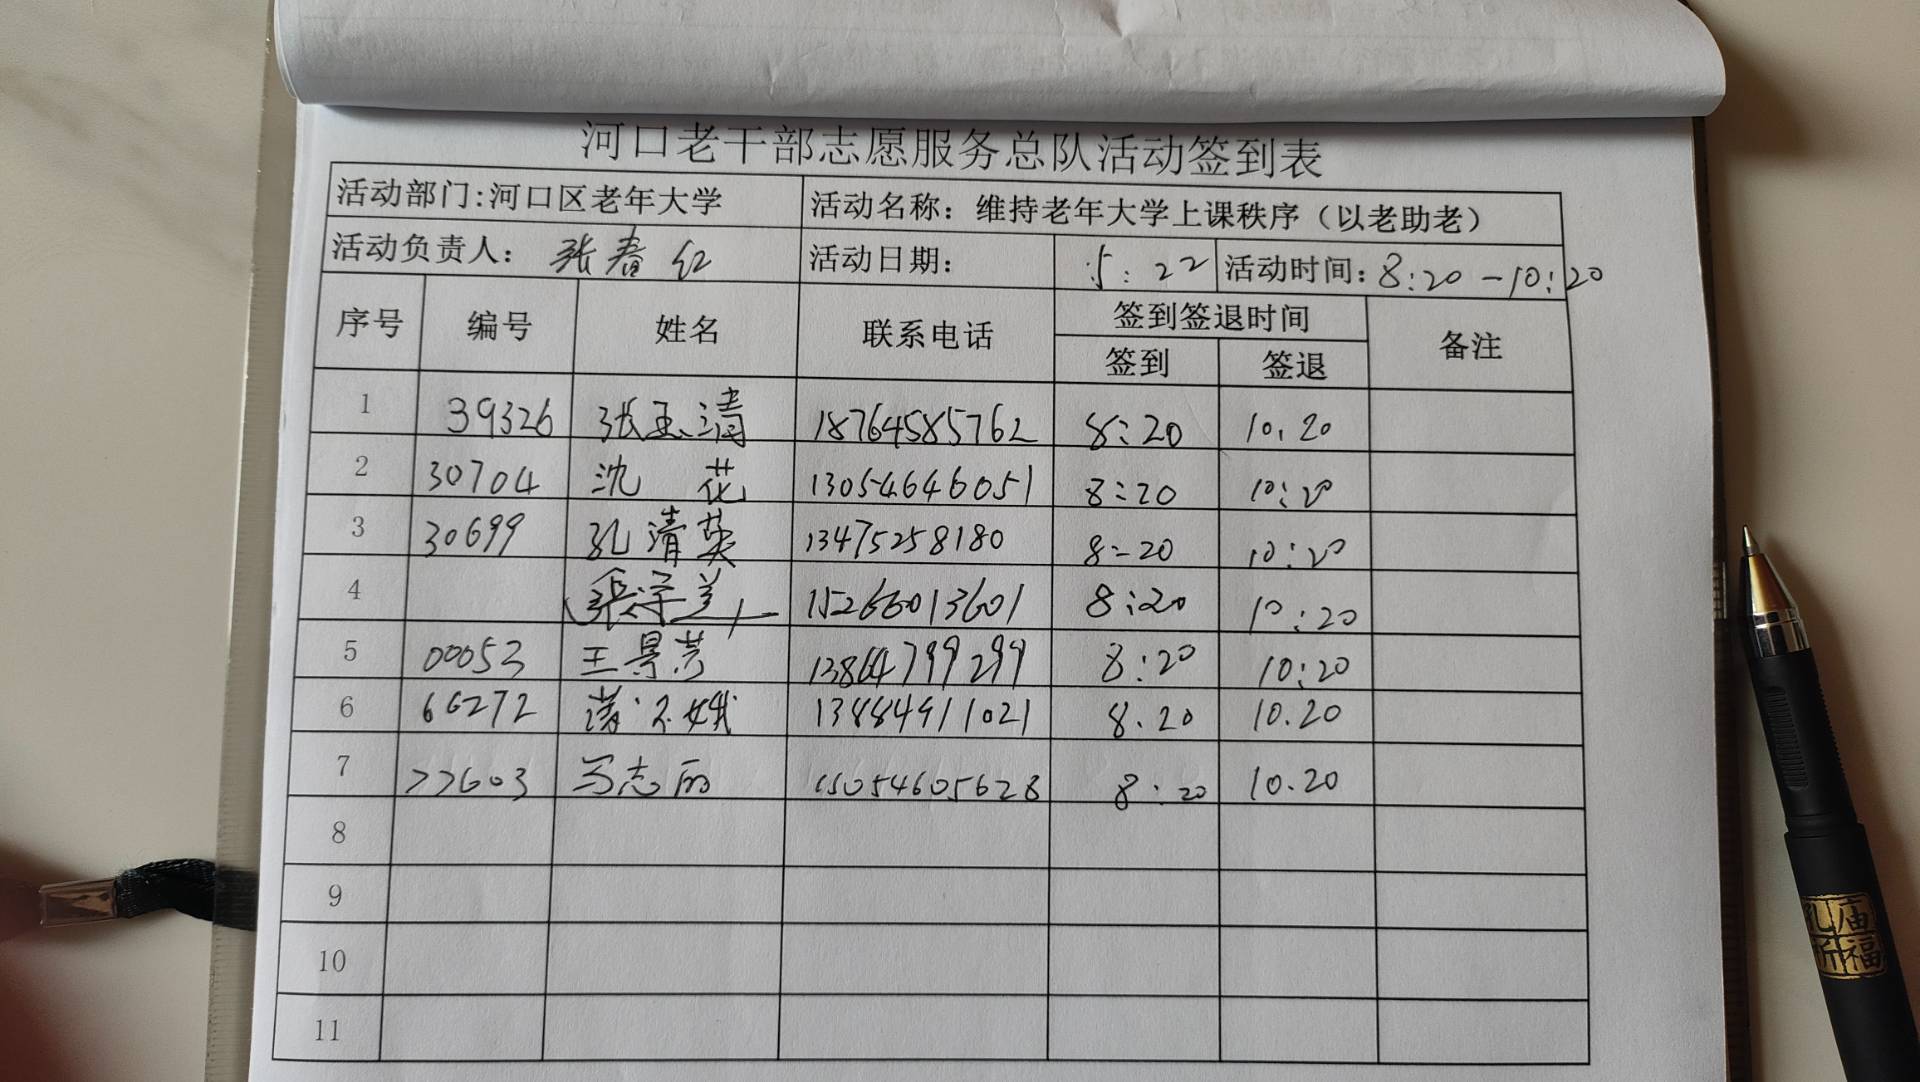 河口老干部志愿服务总队活动签到表
活动部门:河口区老年大学 活动名称：维持老年大学上课秩序（以老助老）
活动负责人： 张春红 活动日期： 5:22 活动时间：8:20-10:20
序号 编号 姓名 联系电话 签到签退时间 备注
签到 签退
1 39326 张玉清 18764585762 8:20 10.20
2 30704 沈花 13054646051 8:20 10:20
3 30699 孔清英 13475258180 8:20 10:20
4 15266013601 8:20 10:20
5 00053 王景芳 13864799299 8:20 10:20
6 66272 13884911021 8.20 10.20
7 77603 马志丽 15054605628 8:20 10.20
8
9
10
11
孔庙
祈福